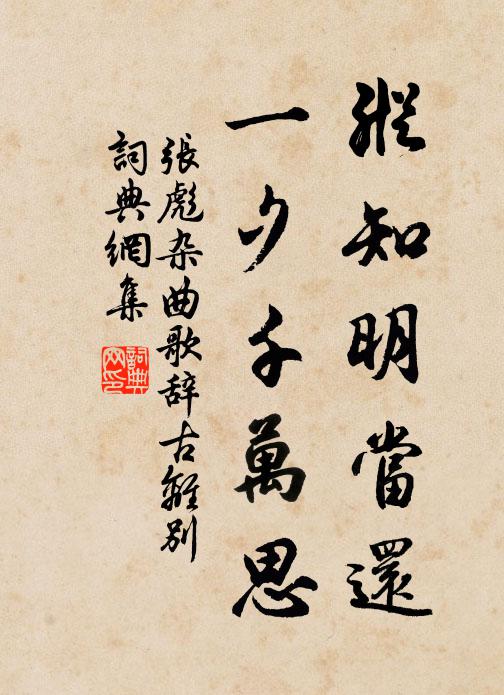 縱知明當還
一夕千萬思
張彪杂曲歌辞古離別
詞典網集
詞典
网印